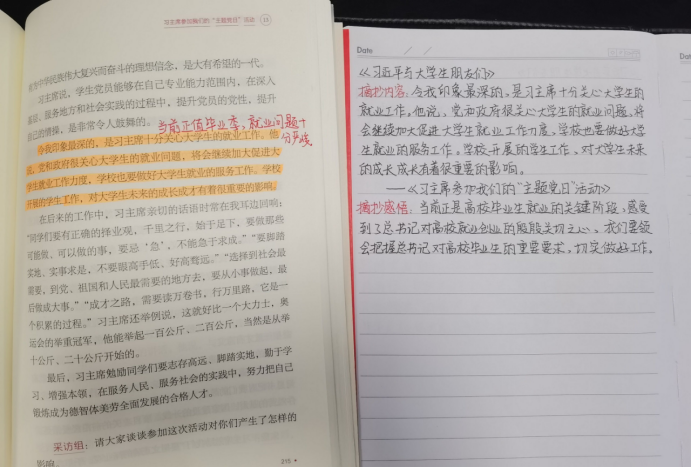 习主席参加我们的“主题党日”活动 13
为中华民族伟大复兴而奋斗的理想信念，是大有希望的一代。
习主席说，学生党员能够在自己专业能力范围内，在深入
基层、服务地方和社会实践的过程中，提升党员的党性，提升
自己的情操，是非常令人鼓舞的。
当前正值毕业季，就业问题十
分严峻
令我印象最深的，是习主席十分关心大学生的就业工作。他
说，党和政府很关心大学生的就业问题，将会继续加大促进大
学生就业工作力度，学校也要做好大学生就业的服务工作。学校
开展的学生工作，对大学生未来的成长成才有着很重要的影响。
在后来的工作中，习主席亲切的话语时常在我耳边回响：
“同学们要有正确的择业观，千里之行，始于足下，要做那些
可能做、可以做的事，要忌‘急’，不能急于求成。”“要脚踏
实地、实事求是，不要眼高手低、好高骛远。”“选择到社会最
需要，到党、祖国和人民最需要的地方去，要从小事做起，最
后做成大事。”“成才之路，需要读万卷书，行万里路，它是一
个积累的过程。”习主席还举例说，这就好比一个大力士，奥
运会的举重冠军，他能举起一百公斤、二百公斤，当然是从举
十公斤、二十公斤开始的。
最后，习主席勉励同学们要志存高远、脚踏实地，勤于学
习、增强本领，在服务人民、服务社会的实践中，努力把自己
锻炼成为德智体美劳全面发展的合格人才。
采访组：请大家谈谈参加这次活动对你们产生了怎样的
影响。
215
Date / /
《习近平与大学生朋友们》
摘抄内容：令我印象最深的，是习主席十分关心大学生的
就业工作。他说，党和政府很关心大学生的就业问题，将
会继续加大促进大学生就业工作力度，学校也要做好大学
生就业的服务工作。学校开展的学生工作，对大学生未来
的成长成才有着很重要的影响。
——《习主席参加我们的“主题党日”活动》
摘抄感悟：当前正是高校毕业生就业的关键阶段，感受
到了总书记对高校就业创业的殷殷关切之心，我们要领
会把握总书记对高校毕业生的重要要求，切实做好工作。
Date